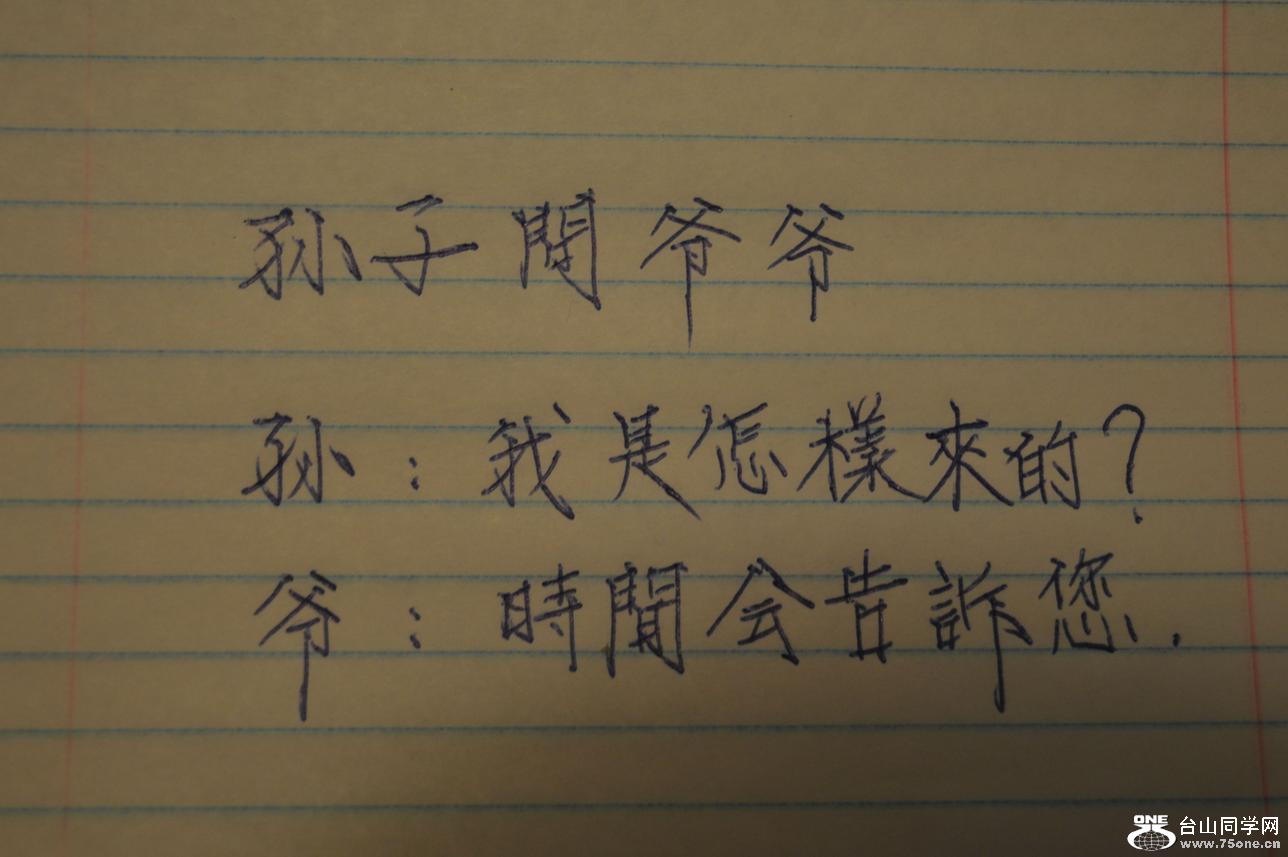 孙子問爷爷
孙：我是怎樣來的？
爷：時間会告訴您.
ONE 台山同学网
www.75one.cn